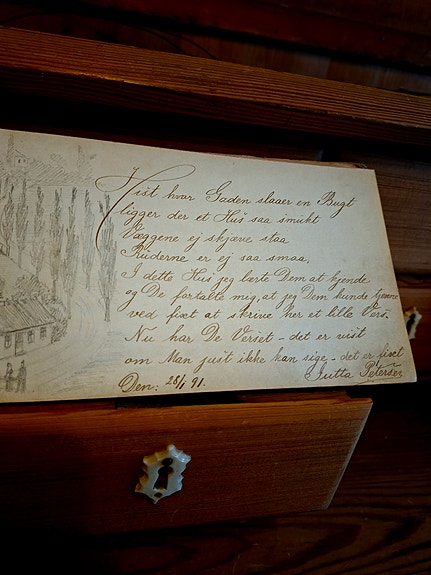 Hist hvor Gaden slaaer en Bugt
ligger der et Hus saa smukt
Væggene ej skjæve staa
Ruderne er ej saa smaa,
I dette Hus jeg lærte Dem at kjende
og De fortalte mig, at jeg Dem kunde tjene
ved fixt at skrive her et lille Vers.
Nu har De Verset - det er vist
om Man just ikke kan sige - det er fixet
Jutta Petersen
Den: 28/1 91.